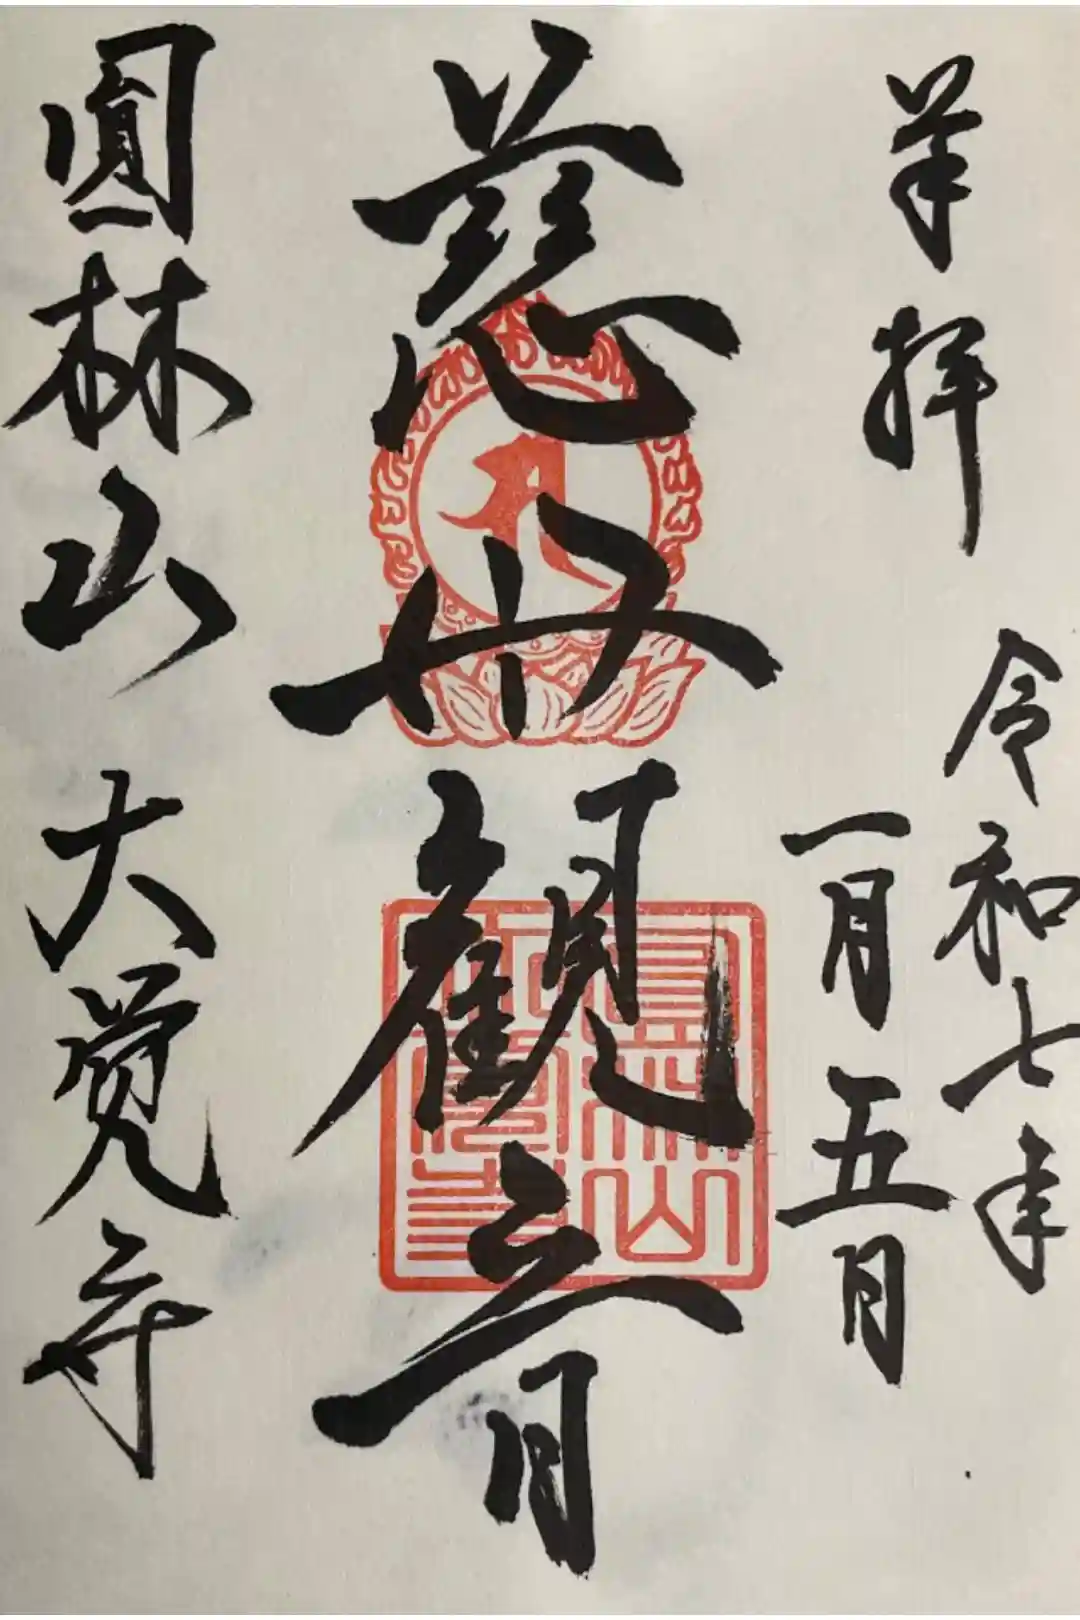 奉拝
令和七年
一月五日
慈母観音
圓林山 大覚寺